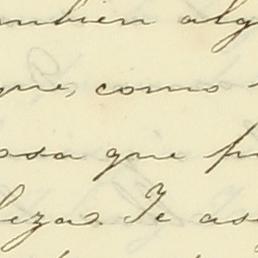 mbien alg
que, como
osa que p
leza. Te as